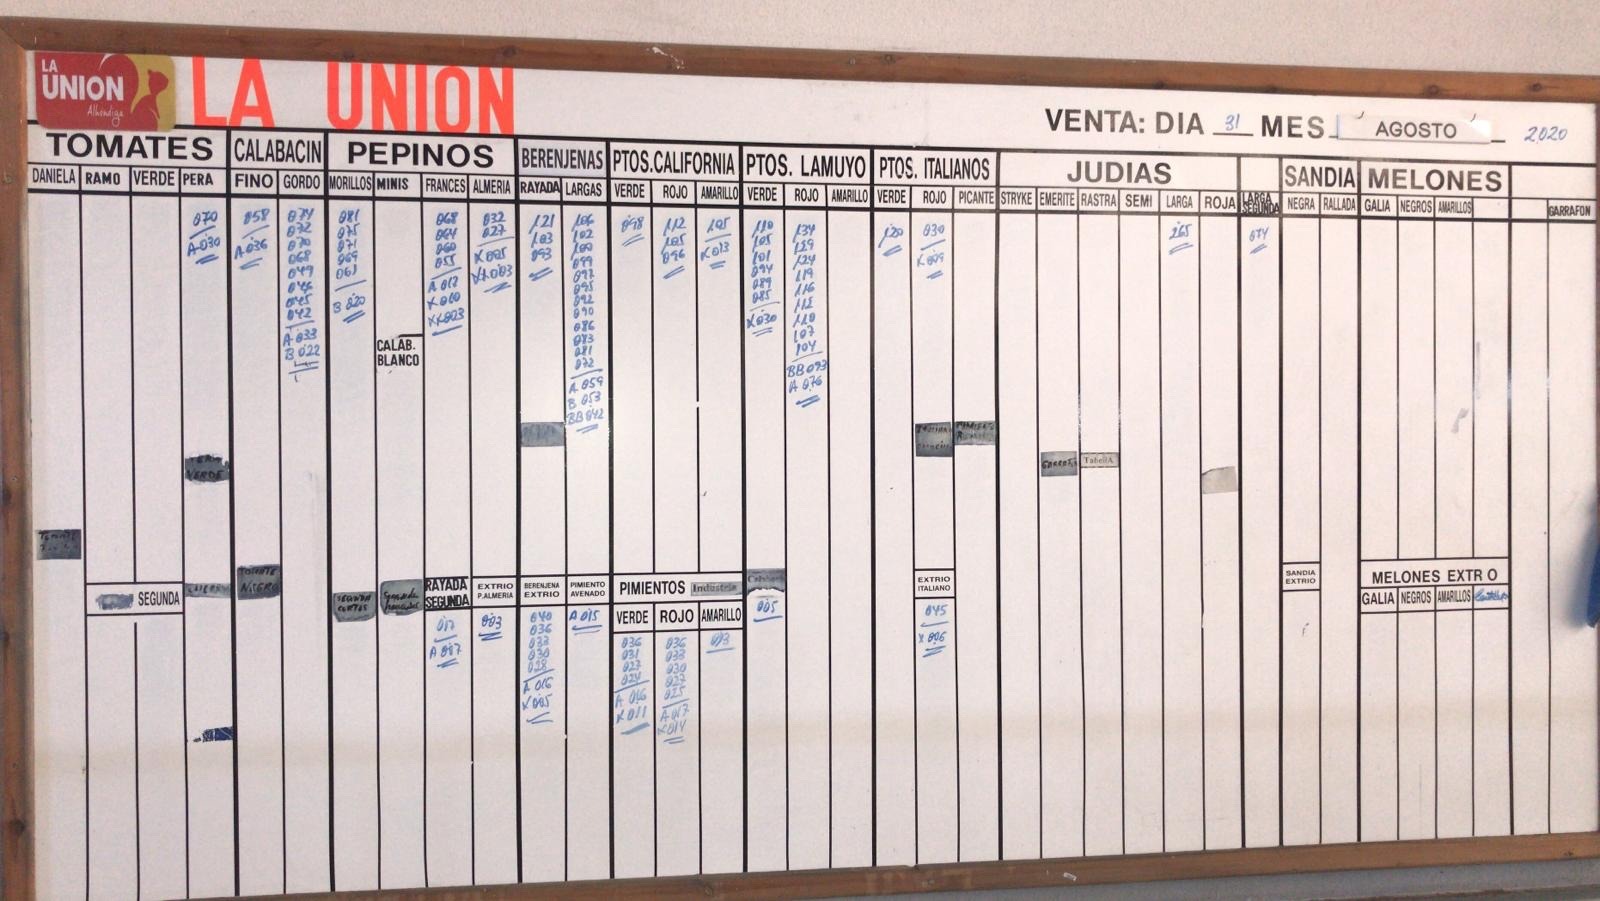 LA
UNION
Alhóndiga
LA UNION
VENTA: DIA 31 MES AGOSTO 2020
TOMATES CALABACIN PEPINOS BERENJENAS PTOS.CALIFORNIA PTOS. LAMUYO PTOS. ITALIANOS JUDIAS SANDIA MELONES
DANIELA RAMO VERDE PERA FINO GORDO MORILLOS MINIS FRANCES ALMERIA RAYADA LARGAS VERDE ROJO AMARILLO VERDE ROJO AMARILLO VERDE ROJO PICANTE STRYKE EMERITE RASTRA SEMI LARGA ROJA LARGA SEGUNDA NEGRA RALLADA GALIA NEGROS AMARILLOS GARRAFON
070
A 030
058
A 036
074
072
070
068
049
046
045
042
A 033
B 022
081
075
071
069
061
B 020
068
064
060
055
A 012
X 010
XX 003
032
027
X 005
XX 003
121
103
093
106
102
100
099
097
095
092
090
086
083
081
072
A 059
B 053
BB 042
098
112
105
096
105
X 013
110
105
101
094
089
085
X 030
134
129
124
119
116
112
110
107
104
BB 093
A 076
120
030
X 009
265
074
CALAB.
BLANCO
VERDE
TabellA
SEGUNDA
TOMATE
NEGRO
SEGUNDA
CORTOS
RAYADA
SEGUNDA
017
A 007
EXTRIO
P.ALMERIA
003
BERENJENA
EXTRIO
040
036
033
030
028
A 016
X 005
PIMIENTO
AVENADO
A 015
PIMIENTOS Industria
VERDE ROJO AMARILLO
036
031
027
024
A 016
X 011
036
033
030
027
025
A 017
X 014
013
005
EXTRIO
ITALIANO
045
X 006
SANDIA
EXTRIO
MELONES EXTR O
GALIA NEGROS AMARILLOS